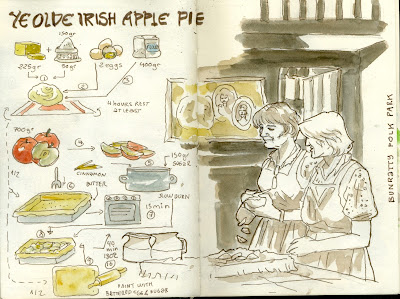 YE OLDE IRISH APPLE PIE
150gr
+
225gr
50gr
2 eggs
400gr
1
2
3
4 HOURS REST
AT LEAST
700gr
4
5
150gr
SUGAR
CINNAMON
1/2
BUTTER
6
SLOW BURN
15 min
7
8
9
40
min
180°C
10
1/2
PAINT WITH
BATTERED EGG & SUGAR
BUNRATTY FOLK PARK